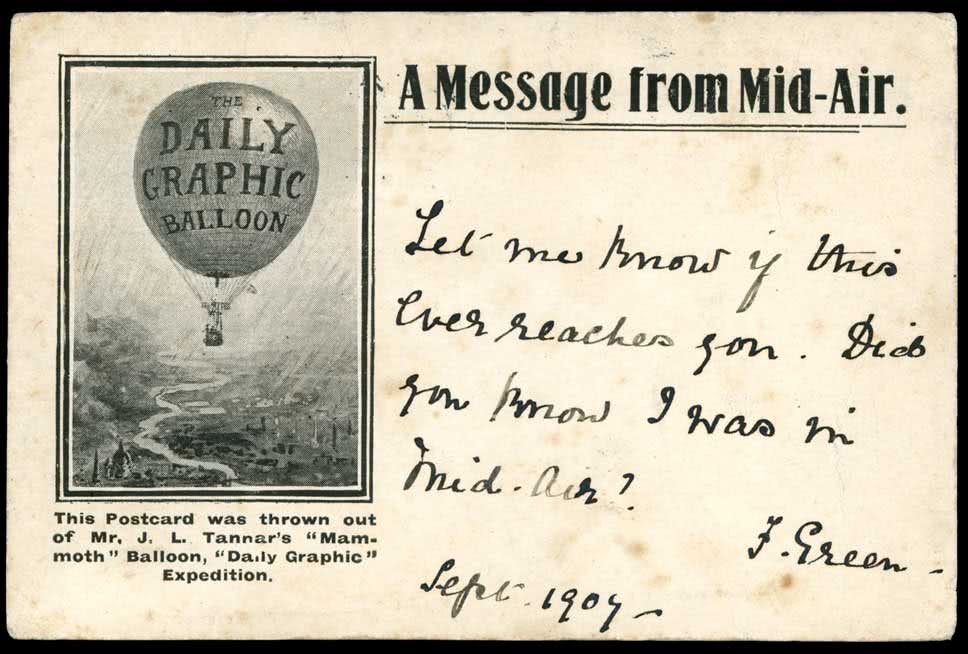 A Message from Mid-Air.
THE
DAILY
GRAPHIC
BALLOON
Let me know if this
ever reaches you. Did
you know I was in
Mid-Air?
F. Green
Sept. 1907
This Postcard was thrown out
of Mr. J. L. Tannar's "Mam-
moth" Balloon, "Daily Graphic"
Expedition.